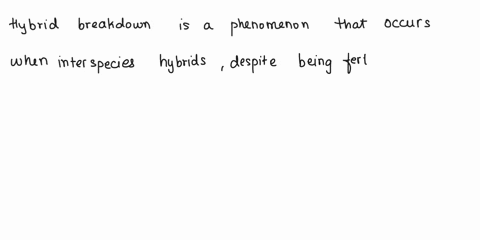 Hybrid breakdown is a phenomenon that occurs
when interspecies hybrids , despite being ferl